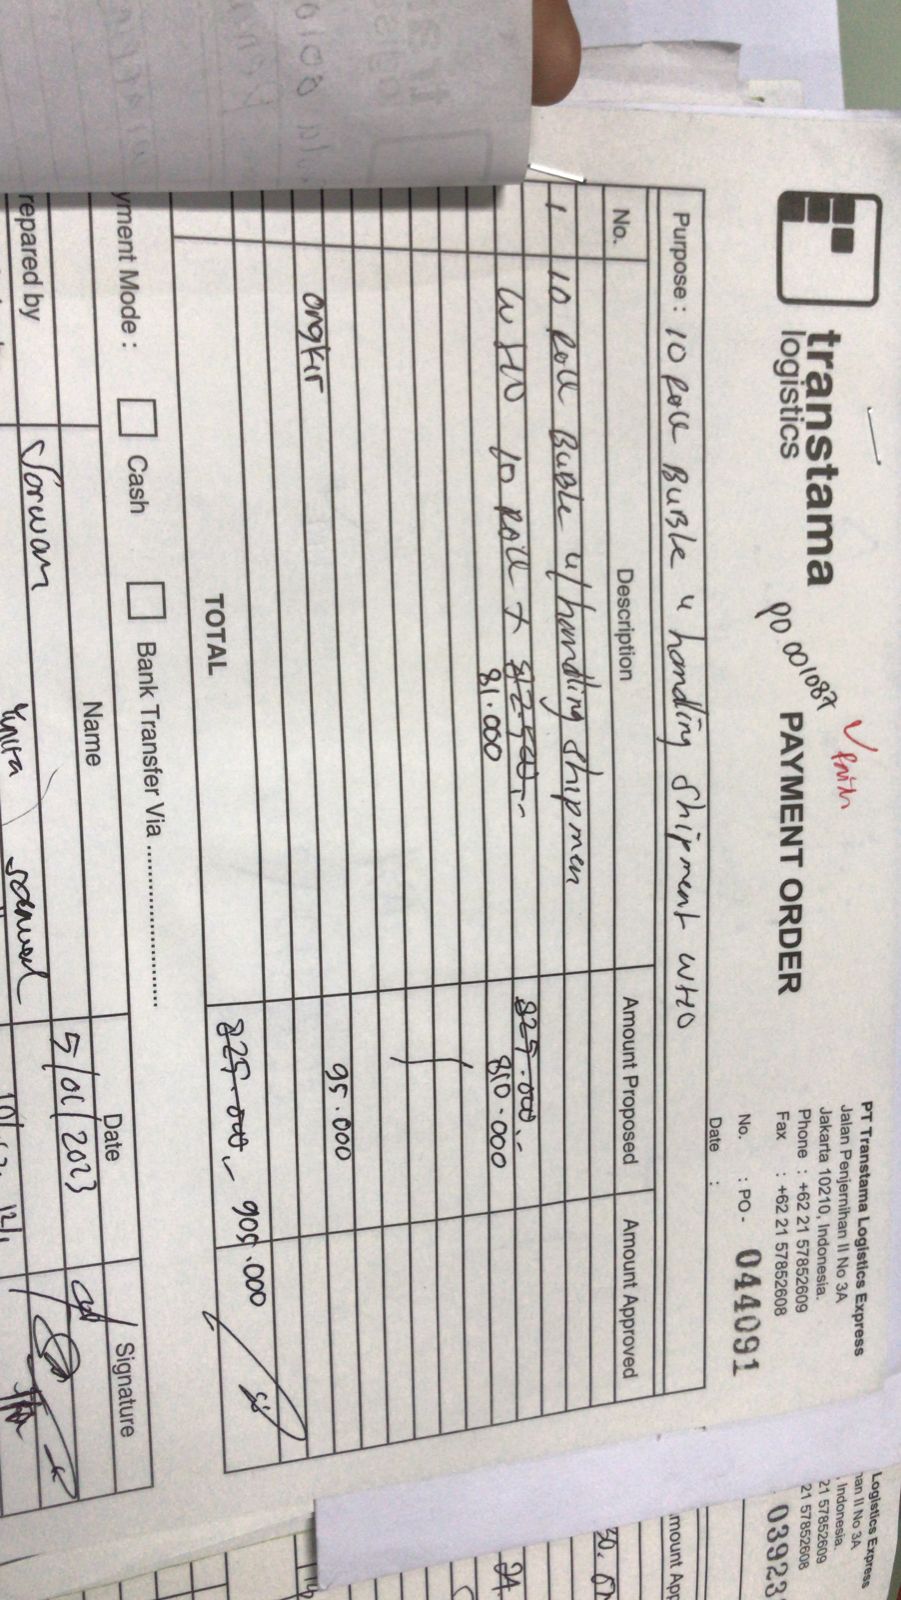 transtama
logistics
PO 001087
PAYMENT ORDER
PT Transtama Logistics Express
Jalan Penjernihan II No 3A
Jakarta 10210, Indonesia.
Phone : +62 21 57852609
Fax : +62 21 57852608
No. : PO - 044091
Date :
Purpose : 10 Roll Buble u handling shipment WHO
No. Description Amount Proposed Amount Approved
1 10 Roll Buble u/handling shipmen
WHO 10 Roll x 82.500.- 825.000.-
81.000 810.000
ongkir 95.000
TOTAL 825.000.- 905.000
yment Mode : Cash Bank Transfer Via ....................
Name Date Signature
repared by Sorwan 5/01/2023
Yunita samuel
Logistics Express
an II No 3A
Indonesia.
21 57852609
21 57852608
03923
mount App